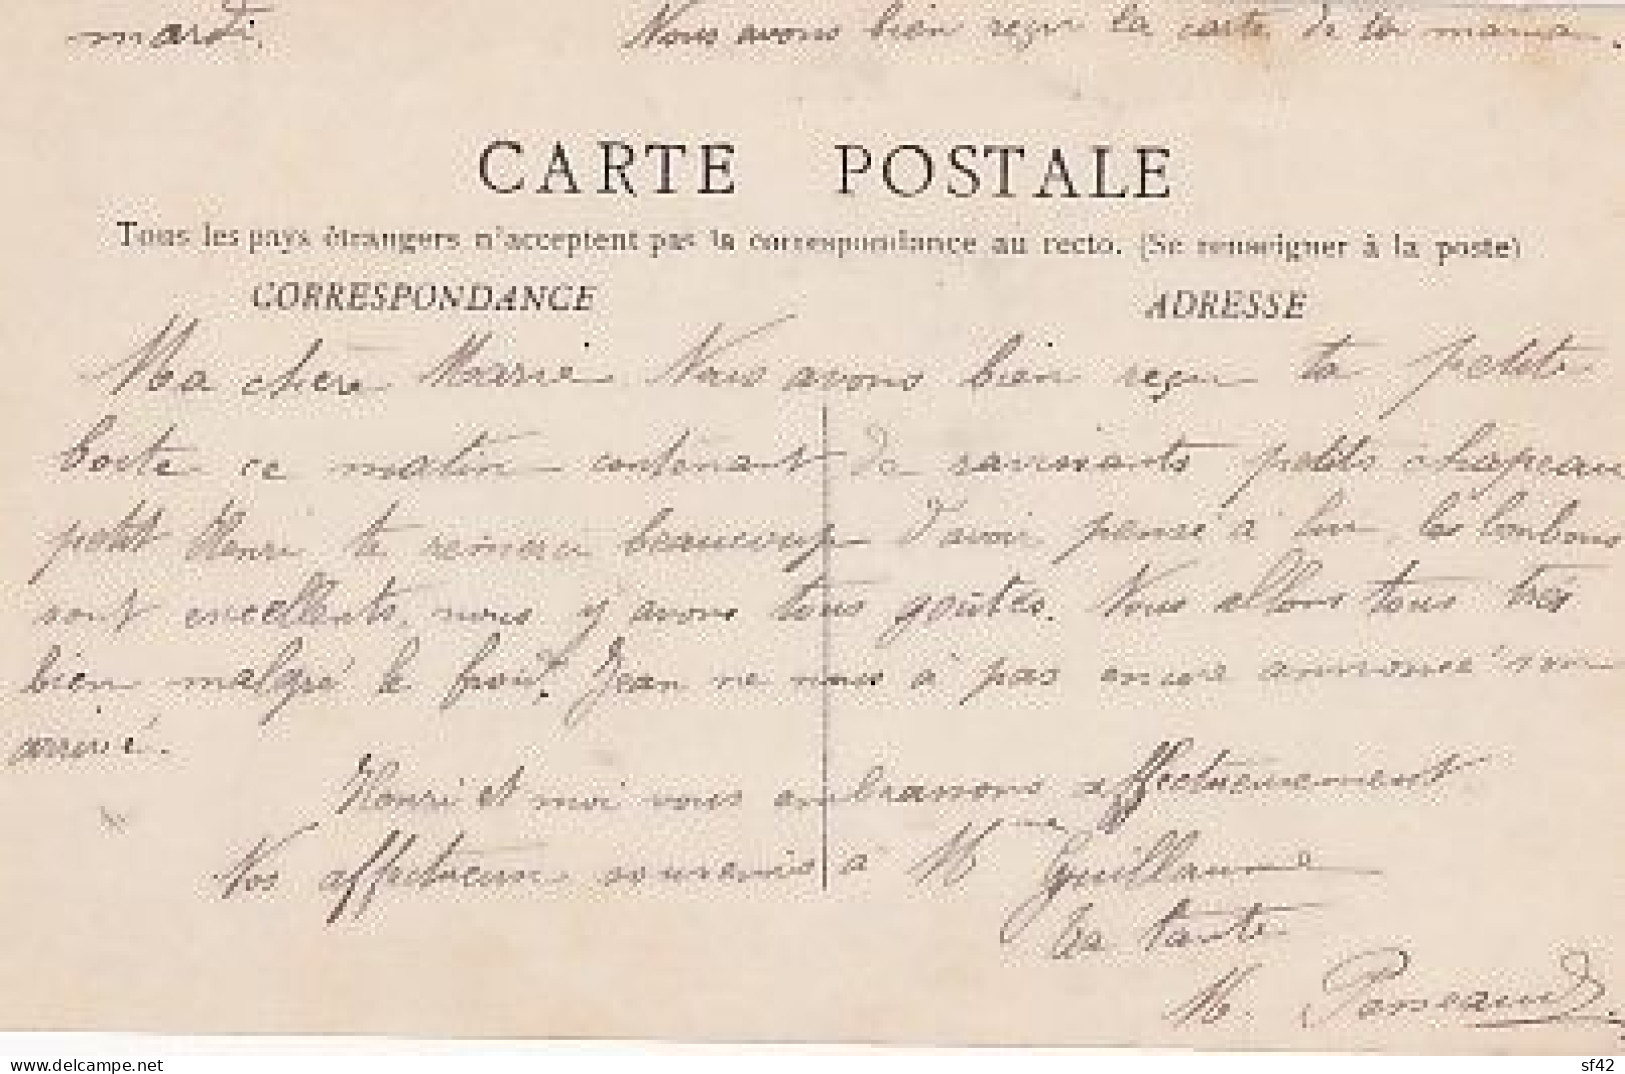 mardi. Nous avons bien reçu la carte de ta maman.
CARTE POSTALE
Tous les pays étrangers n'acceptent pas la correspondance au recto. (Se renseigner à la poste)
CORRESPONDANCE ADRESSE
Ma chère Marie. Nous avons bien reçu ta petite
boite ce matin contenant de ravissants petits chapeau
petit Henri te remercie beaucoup d'avoir pensé à lui, les bonbons
sont excellents, nous y avons tous goûtés. Nous allons tous très
bien malgré le froid. Jean ne nous à pas encore annoncé son
arrivé.
Henri et moi vous embrassons affectueusement.
Nos affectueux souvenirs à Mme Guillaume
Ta tante
M.
sf42